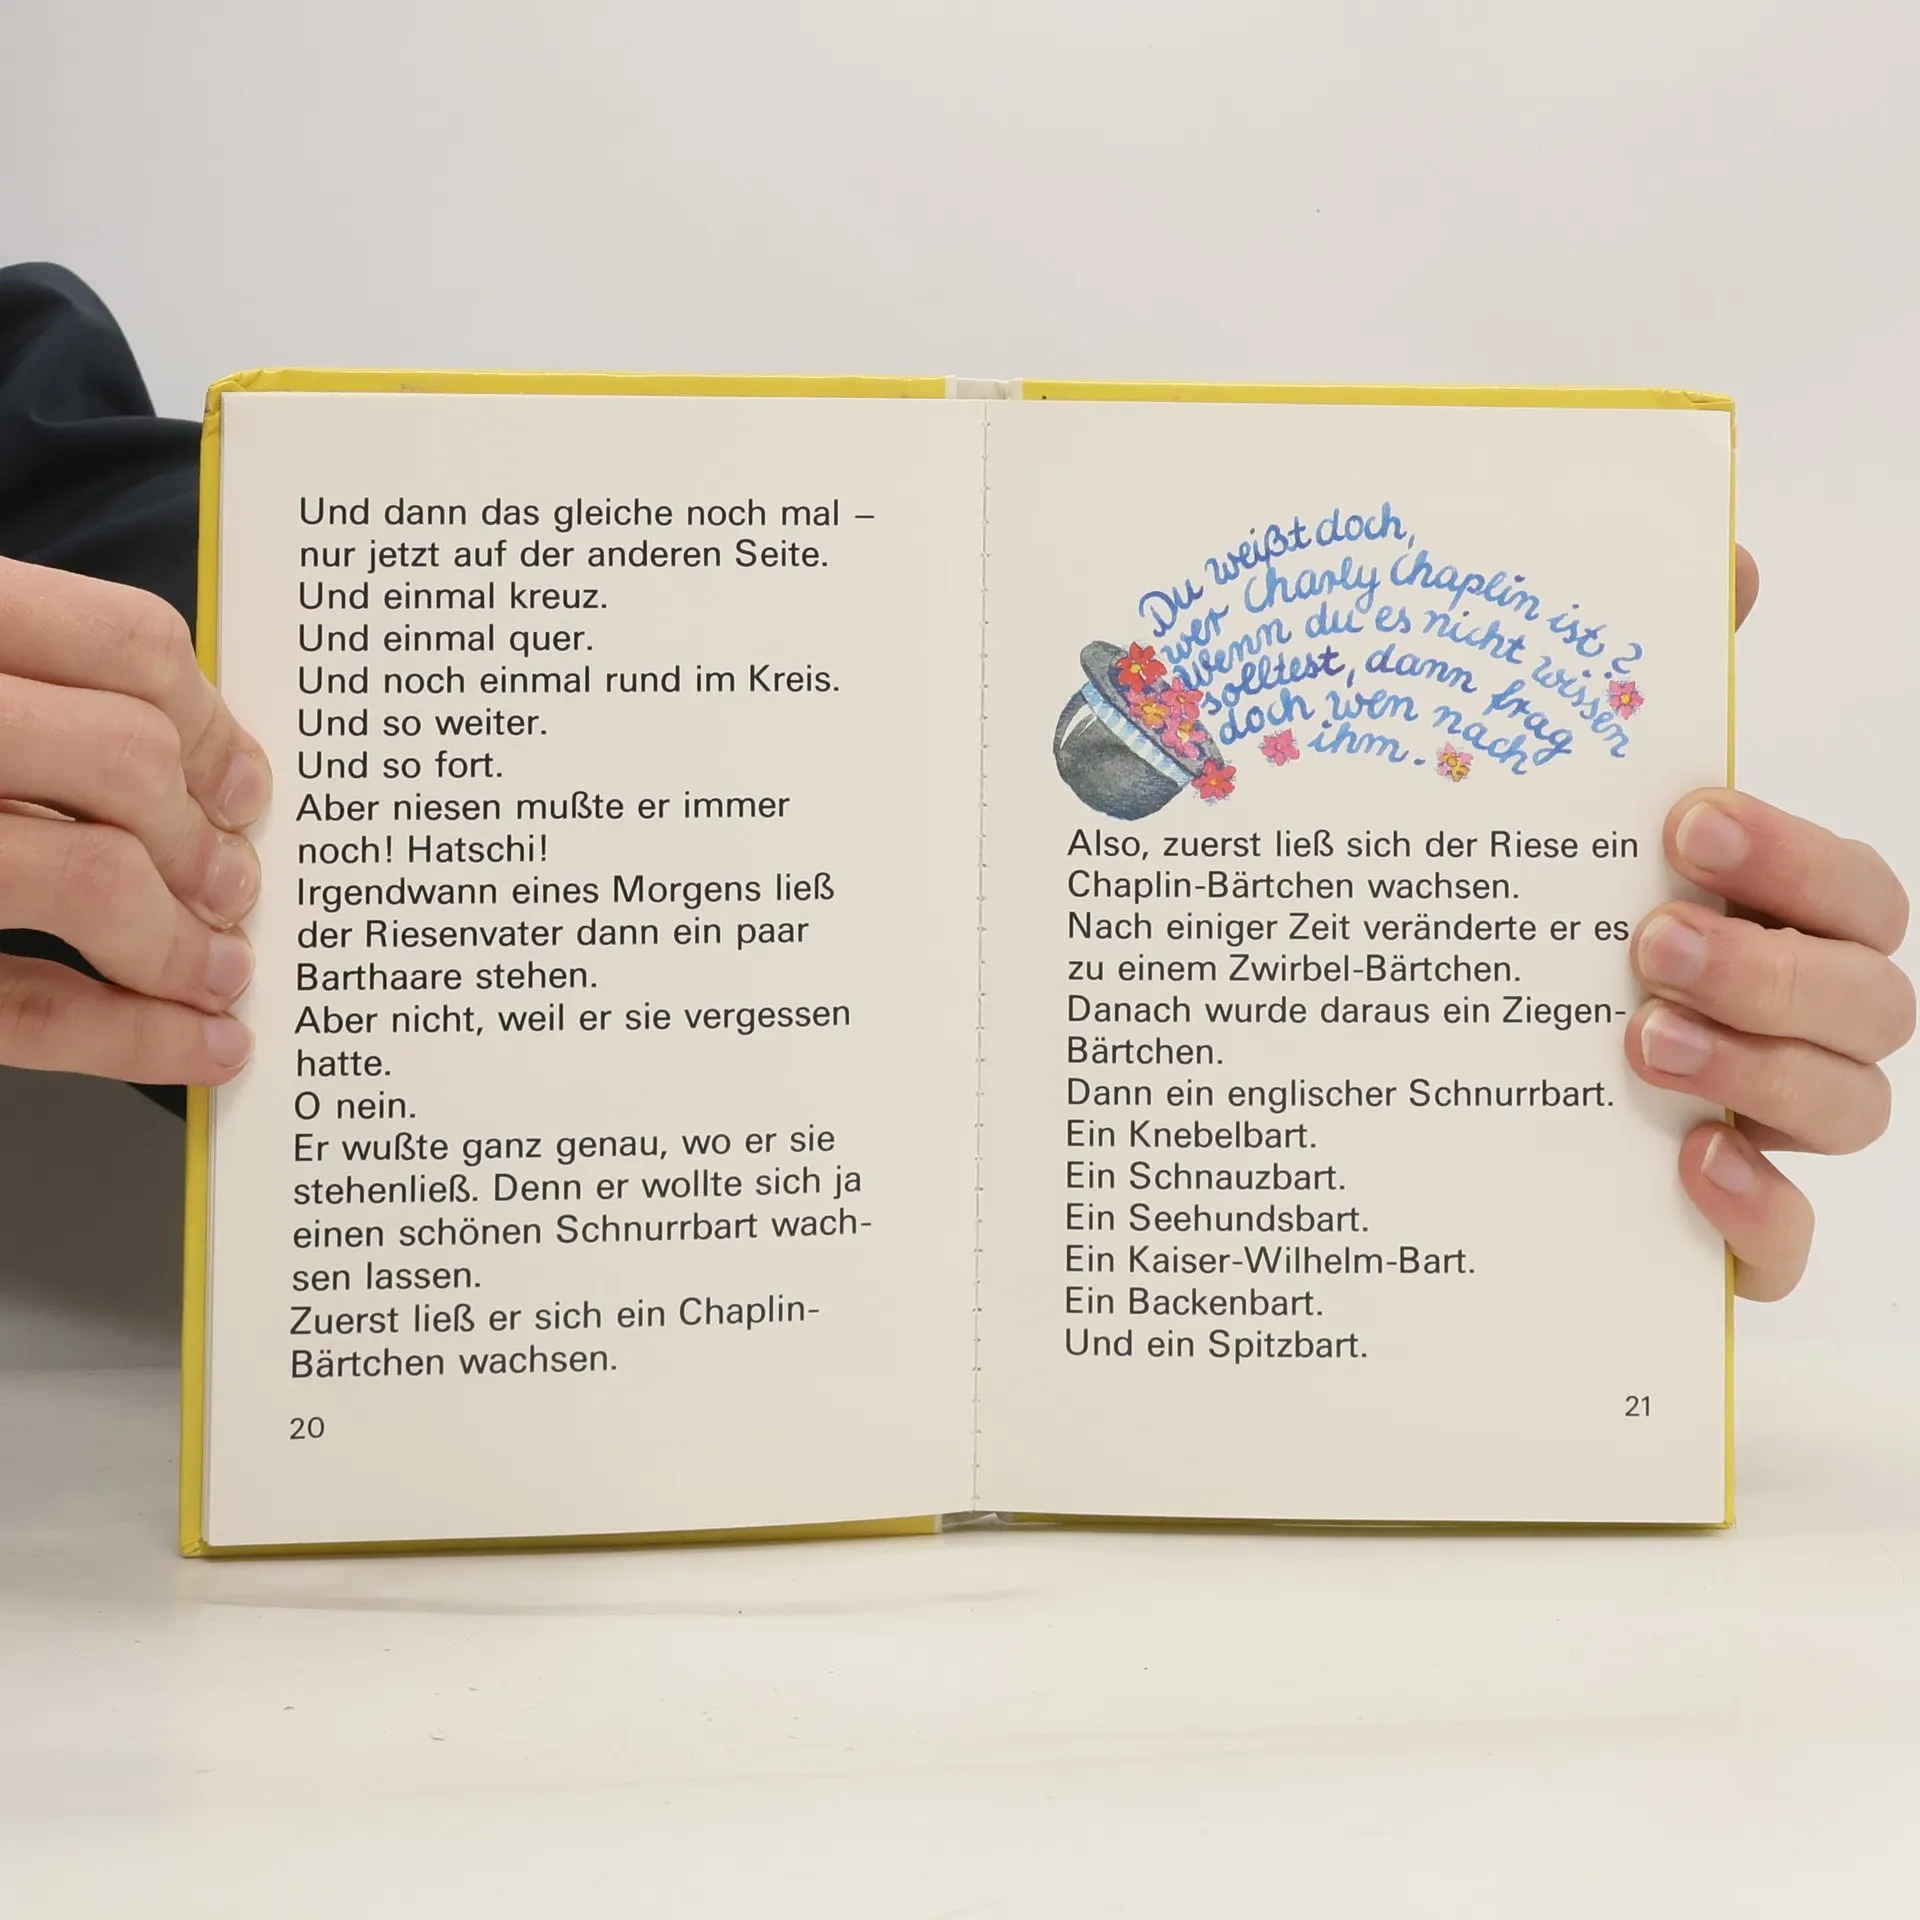 Und dann das gleiche noch mal –
nur jetzt auf der anderen Seite.
Und einmal kreuz.
Und einmal quer.
Und noch einmal rund im Kreis.
Und so weiter.
Und so fort.
Aber niesen mußte er immer
noch! Hatschi!
Irgendwann eines Morgens ließ
der Riesenvater dann ein paar
Barthaare stehen.
Aber nicht, weil er sie vergessen
hatte.
O nein.
Er wußte ganz genau, wo er sie
stehenließ. Denn er wollte sich ja
einen schönen Schnurrbart wach-
sen lassen.
Zuerst ließ er sich ein Chaplin-
Bärtchen wachsen.
20
Du weißt doch,
wer Charly Chaplin ist?
Wenn du es nicht wissen
solltest, dann frag
doch wen nach
ihm.
Also, zuerst ließ sich der Riese ein
Chaplin-Bärtchen wachsen.
Nach einiger Zeit veränderte er es
zu einem Zwirbel-Bärtchen.
Danach wurde daraus ein Ziegen-
Bärtchen.
Dann ein englischer Schnurrbart.
Ein Knebelbart.
Ein Schnauzbart.
Ein Seehundsbart.
Ein Kaiser-Wilhelm-Bart.
Ein Backenbart.
Und ein Spitzbart.
21